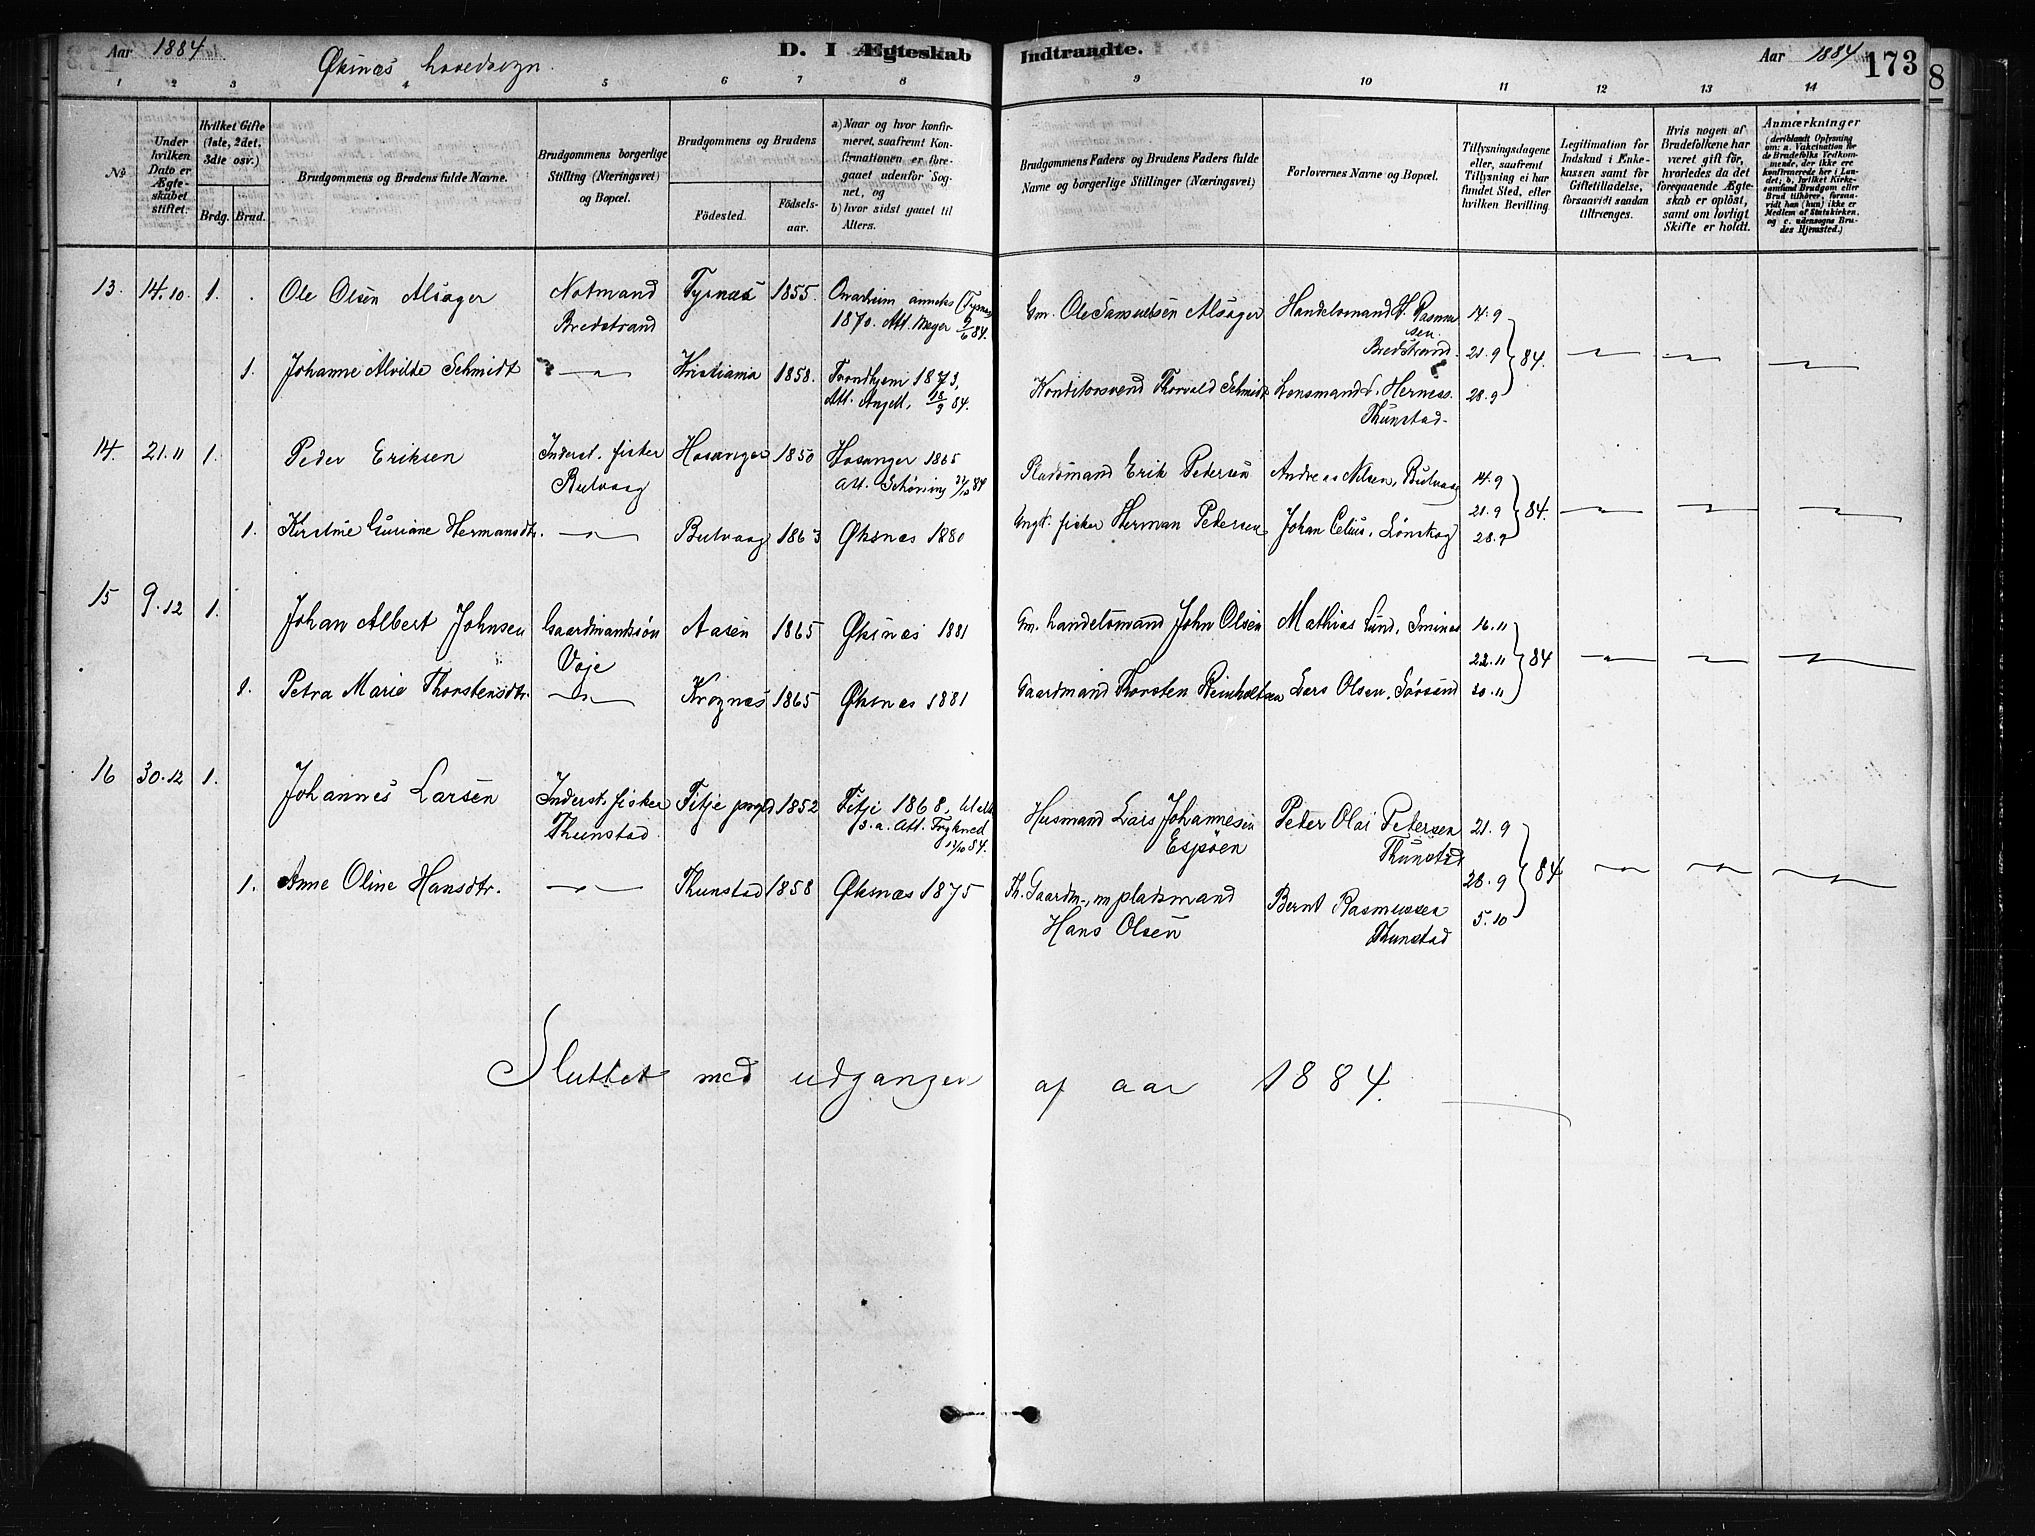 Aar 1884. D. I Ægteskab Indtraadte. Aar 1884 173
Øksnæs hovedsogn.
8
1 2 3 4 5 6 7 8 9 10 11 12 13 14
No
Under hvilken Dato er Ægteskabet stiftet.
Hvilket Gifte (1ste, 2det, 3die osv.)
Brdg. Brud.
Brudgommens og Brudens fulde Navne.
Brudgommens borgerlige Stilling (Næringsvei) og Bopæl.
Brudgommens og Brudens
Födested. Födsels-aar.
a) Naar og hvor konfirmeret, saafremt Konfirmationen er foregaaet udenfor Sognet, og
b) hvor sidst gaaet til Alters.
Brudgommens Faders og Brudens Faders fulde Navne og borgerlige Stillinger (Næringsvei)
Forlovernes Navne og Bopæl.
Tillysningsdagene eller, saafremt Tillysning ei har fundet Sted, efter hvilken Bevilling
Legitimation for Indskud i Enkekassen samt for Giftetilladelse, forsaavidt saadan tiltrænges.
Hvis nogen af Brudefolkene har været gift før, hvorledes da det foregaaende Ægteskab er opløst, samt om lovligt Skifte er holdt.
Anmærkninger
(deriblandt Oplysning om: a. Vakcination for de Brudefolks Vedkommende, der ikke ere konfirmerede her i Landet; b. hvilket Kirkesamfund Brudgom eller Brud tilhører, forsaavidt han (hun) ikke er Medlem af Statskirken, og c. udensogns Brudes Hjemsted.)
13. 14.10. 1. Ole Olsen Alsager Notmand Tysnæs 1855. annex (Tysnæs Gm. Ole Samuelsen Alsager Handelsmand 14.9
Bredstrand 1870. Att. Meyer 9/6 84. Bredstrand 21.9 84.
1. Johanne Alvilde Schmidt Kristiania 1858. Trondhjem 1873, Konditorsvend Thorvald Schmidt Lensmand 28.9
Att. Angell, 18/9 84. Thunstad
14. 21.11 1. Peder Eriksen Inderst. fisker Hosanger 1850 Hosanger 1865 Pladsmand Erik Pedersen Andreas Nilsen, Butvaag 14.9
Butvaag Att. Schøning 84 21.9 84.
1. Kirstine Guriane Hermansdtr. Butvaag 1863 Øksnæs 1880 fisker Herman Pedersen Johan Celius, Lønskog 28.9
15 9.12 1. Johan Albert Johnsen Gaardmandssøn Aasen 1865 Øksnæs 1881 Gm. handelsmand John Olsen Mathias Lund, Sminæs 16.11
Vøje 22.11 84
1. Petra Marie Thorstensdtr. Krognæs 1865 Øksnæs 1881 Gaardmand Thorsten Reinholtsen Lars Olsen, Sørsand 30.11
16 30.12 1. Johannes Larsen Inderst. fisker Fitje prgd 1852 Fitje 1868, Husmand Lars Johannesen Peder Olai Petersen 21.9
Thunstad Att. 12/10 84. Espøen Thunstad
1. Anne Oline Hansdtr. Thunstad 1858 Øksnæs 1875 Th. Gaardm., m pladsmand Bernt Rasmussen 28.9 84
Hans Olsen Thunstad 5.10
Sluttet med udgangen af aar 1884.